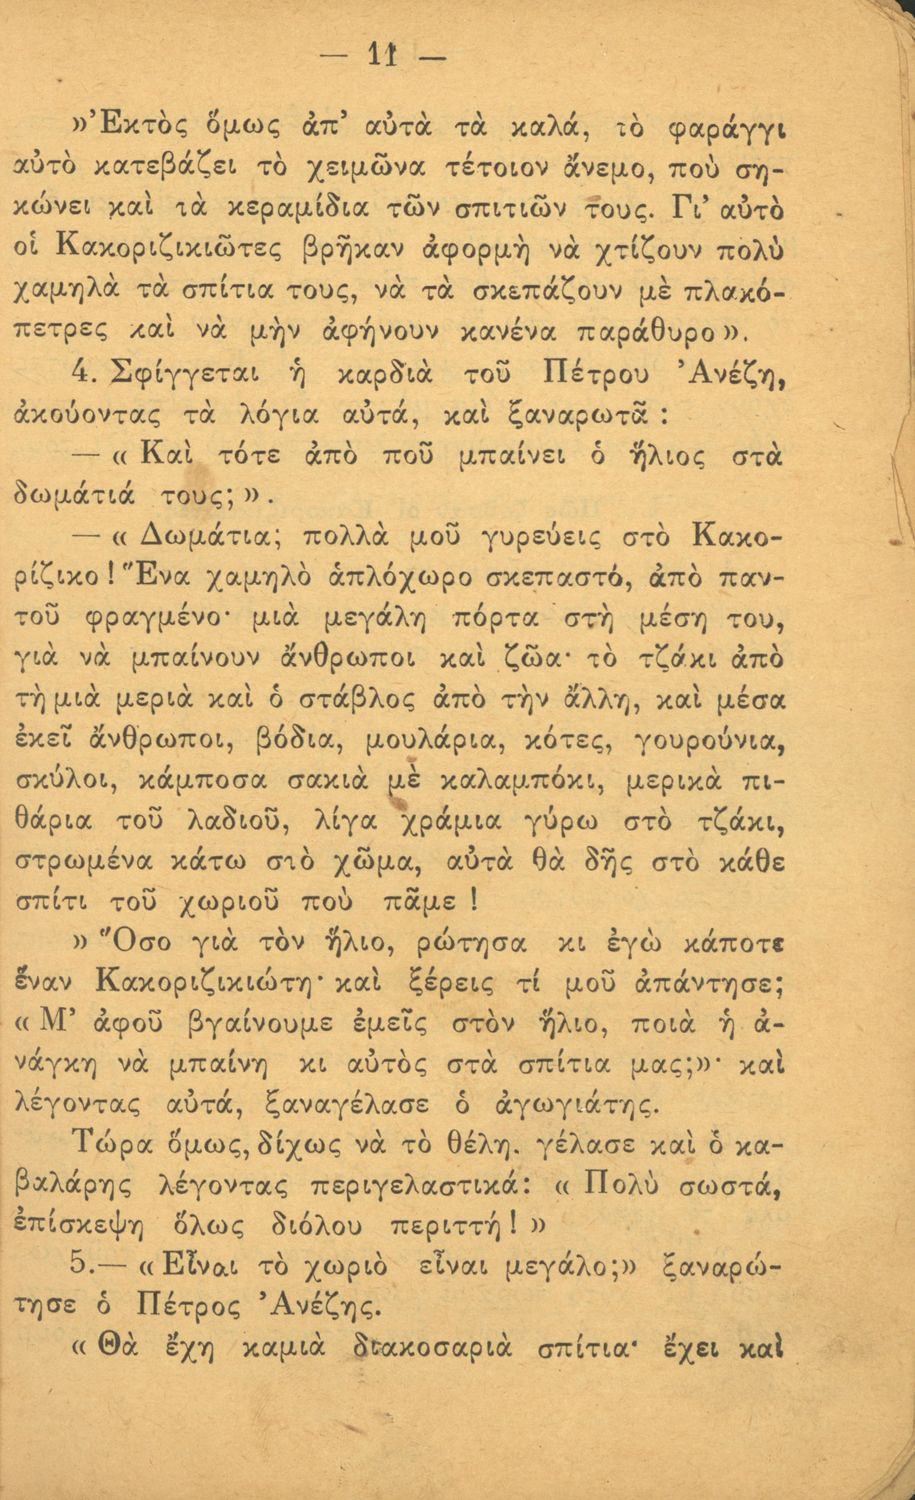 — 11 —
»Ἐκτὸς ὅμως ἀπ’ αὐτὰ τὰ καλά, τὸ φαράγγι
αὐτὸ κατεβάζει τὸ χειμῶνα τέτοιον ἄνεμο, ποὺ ση-
κώνει καὶ τὰ κεραμίδια τῶν σπιτιῶν τους. Γι’ αὐτὸ
οἱ Κακοριζικιῶτες βρῆκαν ἀφορμὴ νὰ χτίζουν πολὺ
χαμηλὰ τὰ σπίτια τους, νὰ τὰ σκεπάζουν μὲ πλακό-
πετρες καὶ νὰ μὴν ἀφήνουν κανένα παράθυρο».
4. Σφίγγεται ἡ καρδιὰ τοῦ Πέτρου Ἀνέζη,
ἀκούοντας τὰ λόγια αὐτά, καὶ ξαναρωτᾶ :
— « Καὶ τότε ἀπὸ ποῦ μπαίνει ὁ ἥλιος στὰ
δωμάτιά τους; » .
— « Δωμάτια; πολλὰ μοῦ γυρεύεις στὸ Κακο-
ρίζικο ! Ἕνα χαμηλὸ ἁπλόχωρο σκεπαστό, ἀπὸ παν-
τοῦ φραγμένο· μιὰ μεγάλη πόρτα στὴ μέση του,
γιὰ νὰ μπαίνουν ἄνθρωποι καὶ ζῶα· τὸ τζάκι ἀπὸ
τὴ μιὰ μεριὰ καὶ ὁ στάβλος ἀπὸ τὴν ἄλλη, καὶ μέσα
ἐκεῖ ἄνθρωποι, βόδια, μουλάρια, κότες, γουρούνια,
σκύλοι, κάμποσα σακιὰ μὲ καλαμπόκι, μερικὰ πι-
θάρια τοῦ λαδιοῦ, λίγα χράμια γύρω στὸ τζάκι,
στρωμένα κάτω στὸ χῶμα, αὐτὰ θὰ δῆς στὸ κάθε
σπίτι τοῦ χωριοῦ ποὺ πᾶμε !
» Ὅσο γιὰ τὸν ἥλιο, ρώτησα κι ἐγὼ κάποτε
ἕναν Κακοριζικιώτη· καὶ ξέρεις τί μοῦ ἀπάντησε;
« Μ’ ἀφοῦ βγαίνουμε ἐμεῖς στὸν ἥλιο, ποιὰ ἡ ἀ-
νάγκη νὰ μπαίνη κι αὐτὸς στὰ σπίτια μας;»· καὶ
λέγοντας αὐτά, ξαναγέλασε ὁ ἀγωγιάτης.
Τώρα ὅμως, δίχως νὰ τὸ θέλη. γέλασε καὶ ὁ κα-
βαλάρης λέγοντας περιγελαστικά: « Πολὺ σωστά,
ἐπίσκεψη ὅλως διόλου περιττή ! »
5.— « Εἶναι τὸ χωριὸ εἶναι μεγάλο;» ξαναρώ-
τησε ὁ Πέτρος Ἀνέζης.
« Θὰ ἔχη καμιὰ διακοσαριὰ σπίτια· ἔχει καὶ